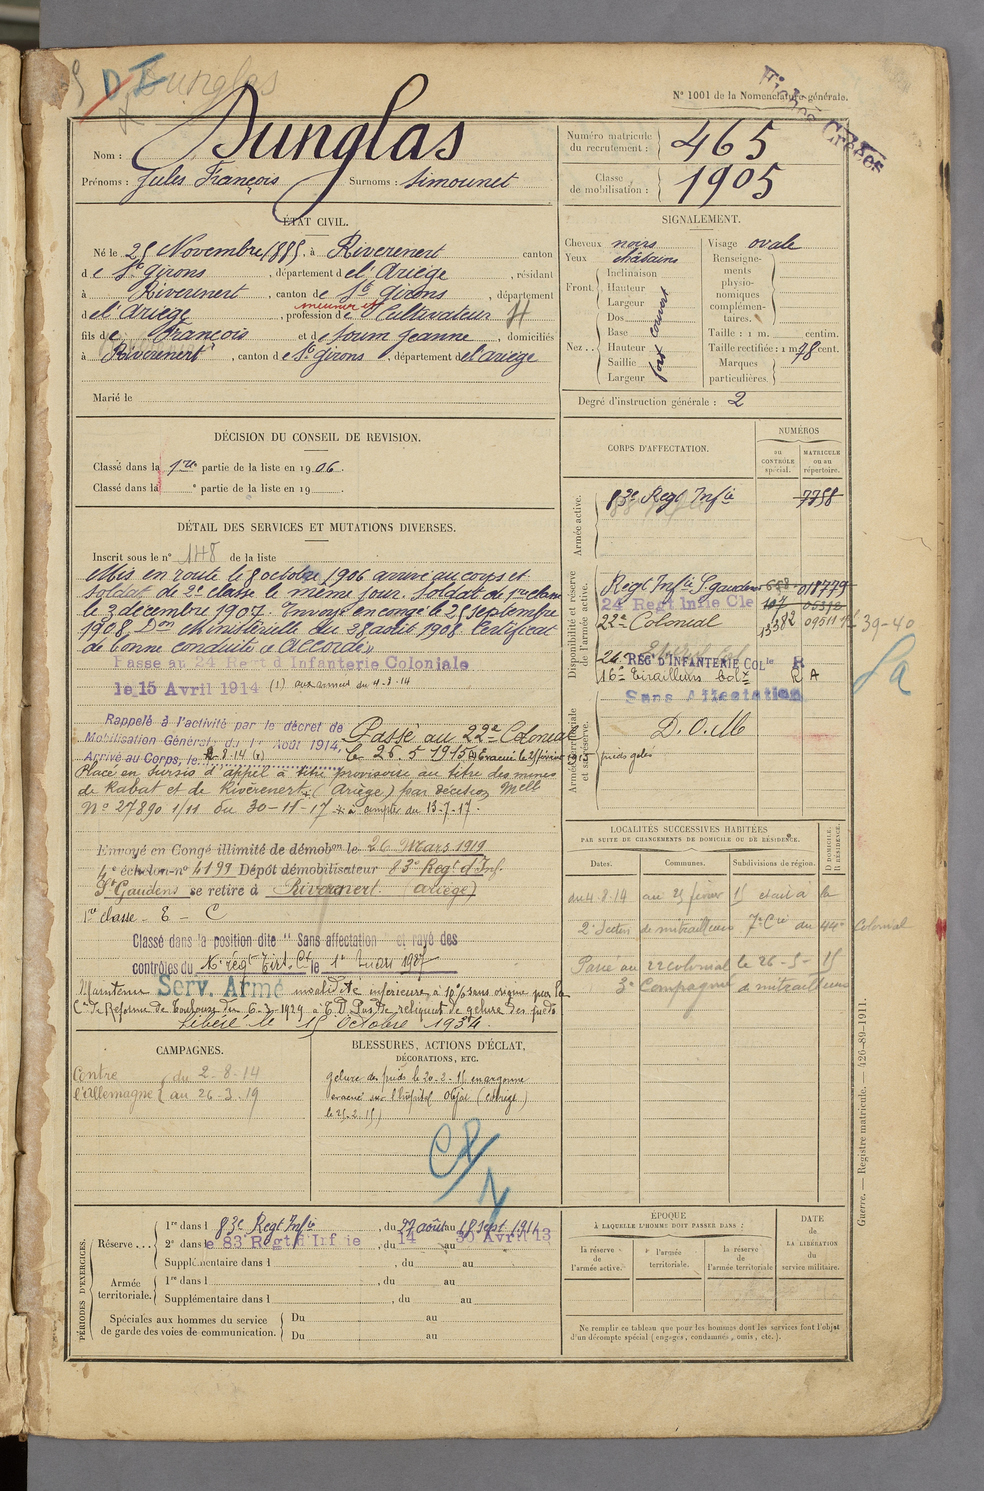 Dunglas
N° 1001 de la Nomenclature générale.
Fiches Créées
Nom : Dunglas
Prénoms : Jules François Surnoms : Simounet
Numéro matricule du recrutement : 465
Classe de mobilisation : 1905
ÉTAT CIVIL.
Né le 25 Novembre 1885, à Riverenert canton
de St Girons, département de l'Ariège, résidant
à Riverenert, canton de St Girons, département
de l'Ariège, profession de Cultivateur
fils de François et de Soum Jeanne, domiciliés
à Riverenert, canton de St Girons, département de l'Ariège
Marié le
SIGNALEMENT.
Cheveux noirs
Yeux châtains
Front. Inclinaison
Hauteur
Largeur
Nez.. Dos
Base
Hauteur
Saillie
Largeur
Visage ovale
Renseignements physionomiques complémentaires.
Taille : 1 m. centim.
Taille rectifiée : 1 m 78 cent.
Marques particulières.
Degré d'instruction générale : 2
DÉCISION DU CONSEIL DE REVISION.
Classé dans la 1re partie de la liste en 1906.
Classé dans la ° partie de la liste en 19 .
CORPS D'AFFECTATION.
NUMÉROS
au CONTRÔLE spécial.
MATRICULE ou au répertoire.
Armée active.
83e Regt Infie 7758
Disponibilité et réserve de l'armée active.
Régt Infie St gaudens
24 Regt Infie Cle
22e Colonial 09511 39-40
24 REGt D'INFANTERIE COLle R
16e Tirailleurs Colx R A
Sans Affectation
Armée territoriale et sa réserve.
D.O.M
DÉTAIL DES SERVICES ET MUTATIONS DIVERSES.
Inscrit sous le n° 148 de la liste
Mis en route le 8 octobre 1906 arrivé au corps et
soldat de 2e classe le même jour. Soldat de 1re classe
le 3 décembre 1907. Envoyé en congé le 25 septembre
1908. Don Ministérielle du 28 août 1908. Certificat
de bonne conduite « Accordé »
Passe au 24 Regt d Infanterie Coloniale
le 15 Avril 1914 (1)
Rappelé à l'activité par le décret de
Mobilisation Général du 1er Août 1914,
Arrivé au Corps, le
Passé au 22e Colonial
le 26.5 1915 Evacué le 25 février 1915 pieds gelés
Placé en sursis d'appel à titre provisoire au titre des mines
de Rabat et de Rivèrenert (Ariège) par décision Melle
N° 27890 1/11 du 30-11-17 à compter du 13-7-17.
Envoyé en Congé illimité de démobon le 26 Mars 1919
4e échelon n° 4199 Dépôt démobilisateur 83e Regt d'Inf.
St Gaudens se retire à Riverenert (Ariège)
1re classe - E - C
Classé dans la position dite " Sans affectation et rayé des
contrôles du régt le 1er
Maintenu Serv. Armé invalidité inférieure à 10% sans origine par la
Con de Réforme de Toulouse du 6-2-1929 à T.D. Pas de reliquat de gelure des pieds
Libéré le 15 Octobre 1934
LOCALITÉS SUCCESSIVES HABITÉES
PAR SUITE DE CHANGEMENTS DE DOMICILE OU DE RÉSIDENCE.
Dates. Communes. Subdivisions de région. D DOMICILE. R RÉSIDENCE.
du 4.8.14 au 25 février 15 était à la
2e Section de mitrailleurs 7e Cie du 44e Colonial
Passé au 22 colonial le 26-5-15
3e Compagnie de mitrailleurs
CAMPAGNES.
Contre l'Allemagne du 2-8-14
au 26-3-19
BLESSURES, ACTIONS D'ÉCLAT,
DÉCORATIONS, ETC.
gelure des pieds le 20-2-15 en argonne
évacué sur l'hôpital Objat (corrèze)
le 25.2.15)
PÉRIODES D'EXERCICES.
Réserve... 1re dans l 83e Regt Infie, du 27 août au 18 Sept. 1911
2e dans le 83 Regt d'Infie, du 14 au 30 Avril 13
Supplémentaire dans l , du au
Armée territoriale. 1re dans l , du au
Supplémentaire dans l , du au
Spéciales aux hommes du service de garde des voies de communication. Du au
Du au
ÉPOQUE
À LAQUELLE L'HOMME DOIT PASSER DANS :
la réserve de l'armée active.
l'armée territoriale.
la réserve de l'armée territoriale
DATE DE LA LIBÉRATION du service militaire.
Ne remplir ce tableau que pour les hommes dont les services font l'objet
d'un décompte spécial (engagés, condamnés, omis, etc.).
Guerre. — Registre matricule. — 426-89-1911.